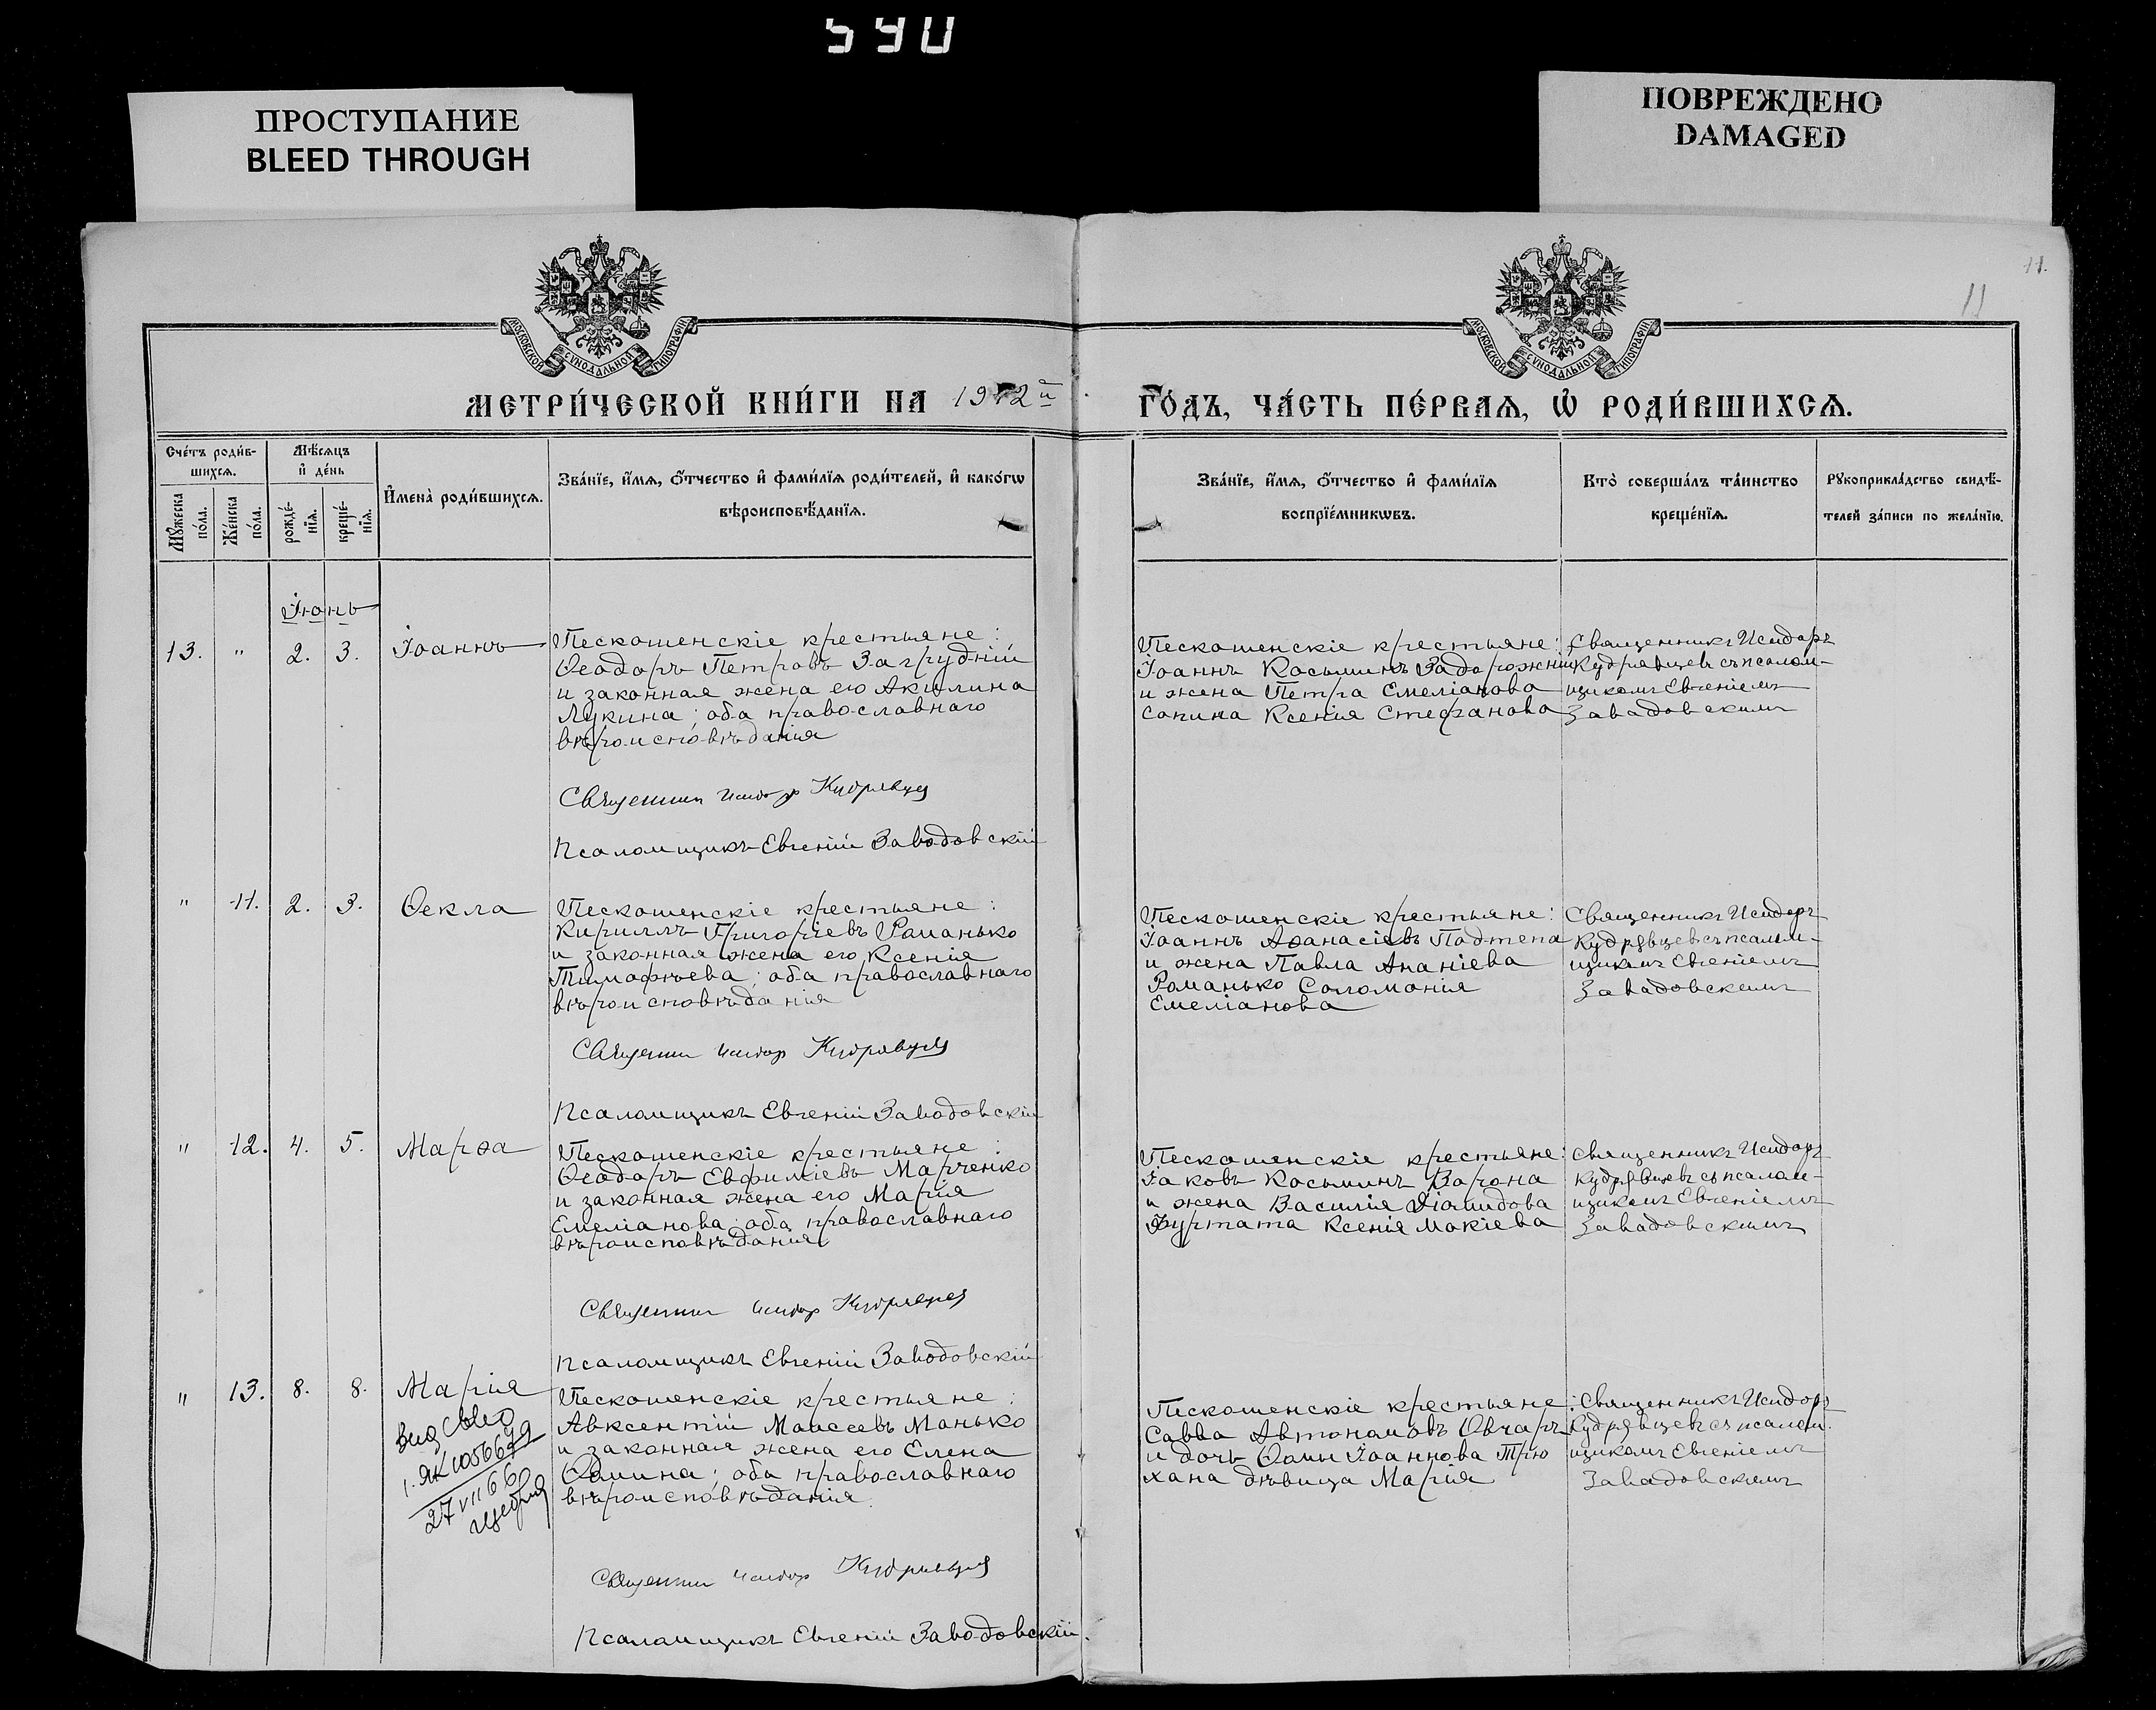 590
ПРОСТУПАНИЕ
BLEED THROUGH
ПОВРЕЖДЕНО
DAMAGED
11.
11
МОСКОВСКОЙ СѴНОДАЛЬНОЙ ТИПОГРАФІИ
МОСКОВСКОЙ СѴНОДАЛЬНОЙ ТИПОГРАФІИ
МЕТРИ́ЧЕСКОЙ КНИ́ГИ НА 1912й
ГО́ДЪ, ЧА́СТЬ ПЕ́РВАѦ, Ѡ҆ РОДИ́ВШИХСѦ.
Сче́тъ роди́в-
шихсѧ.
Мꙋ́жеска
по́ла.
Же́нска
по́ла.
Мѣ́сѧцъ
и҆ де́нь
рожде́-
нїѧ.
креще́-
нїѧ.
И҆мена̀ роди́вшихсѧ.
Зва́нїе, и҆́мѧ, ѻ҆́тчество и҆ фами́лїѧ роди́телей, и҆ како́гѡ
вѣроисповѣ́данїѧ.
Зва́нїе, и҆́мѧ, ѻ҆́тчество и҆ фами́лїѧ
воспрїе́мникѡвъ.
Кто̀ соверша́лъ та́инство
креще́нїѧ.
Рꙋкоприкла́дство свидѣ́-
телей за́писи по жела́нїю.
Іюнь
13. " 2. 3. Іоаннъ
Пескошенскіе крестьяне:
Ѳеодоръ Петровъ Загрудній
и законная жена его Акилина
Лукина; оба православнаго
вѣроисповѣданія
Священник Исидор Кудрявцев
Псаломщикъ Евгеній Заводовскій
Пескошенскіе крестьяне:
Іоаннъ Косьминъ Задорожній
и жена Петра Емеліанова
Сопина Ксенія Стефанова
Священникъ Исидоръ
Кудрявцевъ съ псалом-
щикомъ Евгеніемъ
Завадовскимъ
" 11. 2. 3. Ѳекла
Пескошенскіе крестьяне:
Кириллъ Григоріевъ Романько
и законная жена его Ксенія
Тимофѣева; оба православнаго
вѣроисповѣданія
Священник Исидор Кудрявцев
Псаломщикъ Евгеній Заводовскій
Пескошенскіе крестьяне:
Іоаннъ Аѳанасіевъ Подтепа
и жена Павла Ананіева
Романько Соломонія
Емеліанова
Священникъ Исидоръ
Кудрявцевъ съ псалом-
щикомъ Евгеніемъ
Завадовскимъ
" 12. 4. 5. Марѳа
Пескошенскіе крестьяне:
Ѳеодоръ Евфиміевъ Марченко
и законная жена его Марія
Емеліанова; оба православнаго
вѣроисповѣданія
Священник Исидор Кудрявцев
Псаломщикъ Евгеній Заводовскій
Пескошенскіе крестьяне:
Іаковъ Косьминъ Ворона
и жена Василія Діамидова
Фуртата Ксенія Мокіева
Священникъ Исидоръ
Кудрявцевъ съ псалом-
щикомъ Евгеніемъ
Завадовскимъ
" 13. 8. 8. Марія
Вид свід
1. ЯК 1056679
27 VII 66
Пескошенскіе крестьяне:
Авксентій Моисеевъ Манько
и законная жена его Елена
Ѳомина; оба православнаго
вѣроисповѣданія.
Священник Исидор Кудрявцев
Псаломщикъ Евгеній Заводовскій.
Пескошенскіе крестьяне:
Савва Автономовъ Овчаръ
и дочь Ѳомы Іоаннова Трю
хана дѣвица Марія
Священникъ Исидоръ
Кудрявцевъ съ псалом-
щикомъ Евгеніемъ
Завадовскимъ